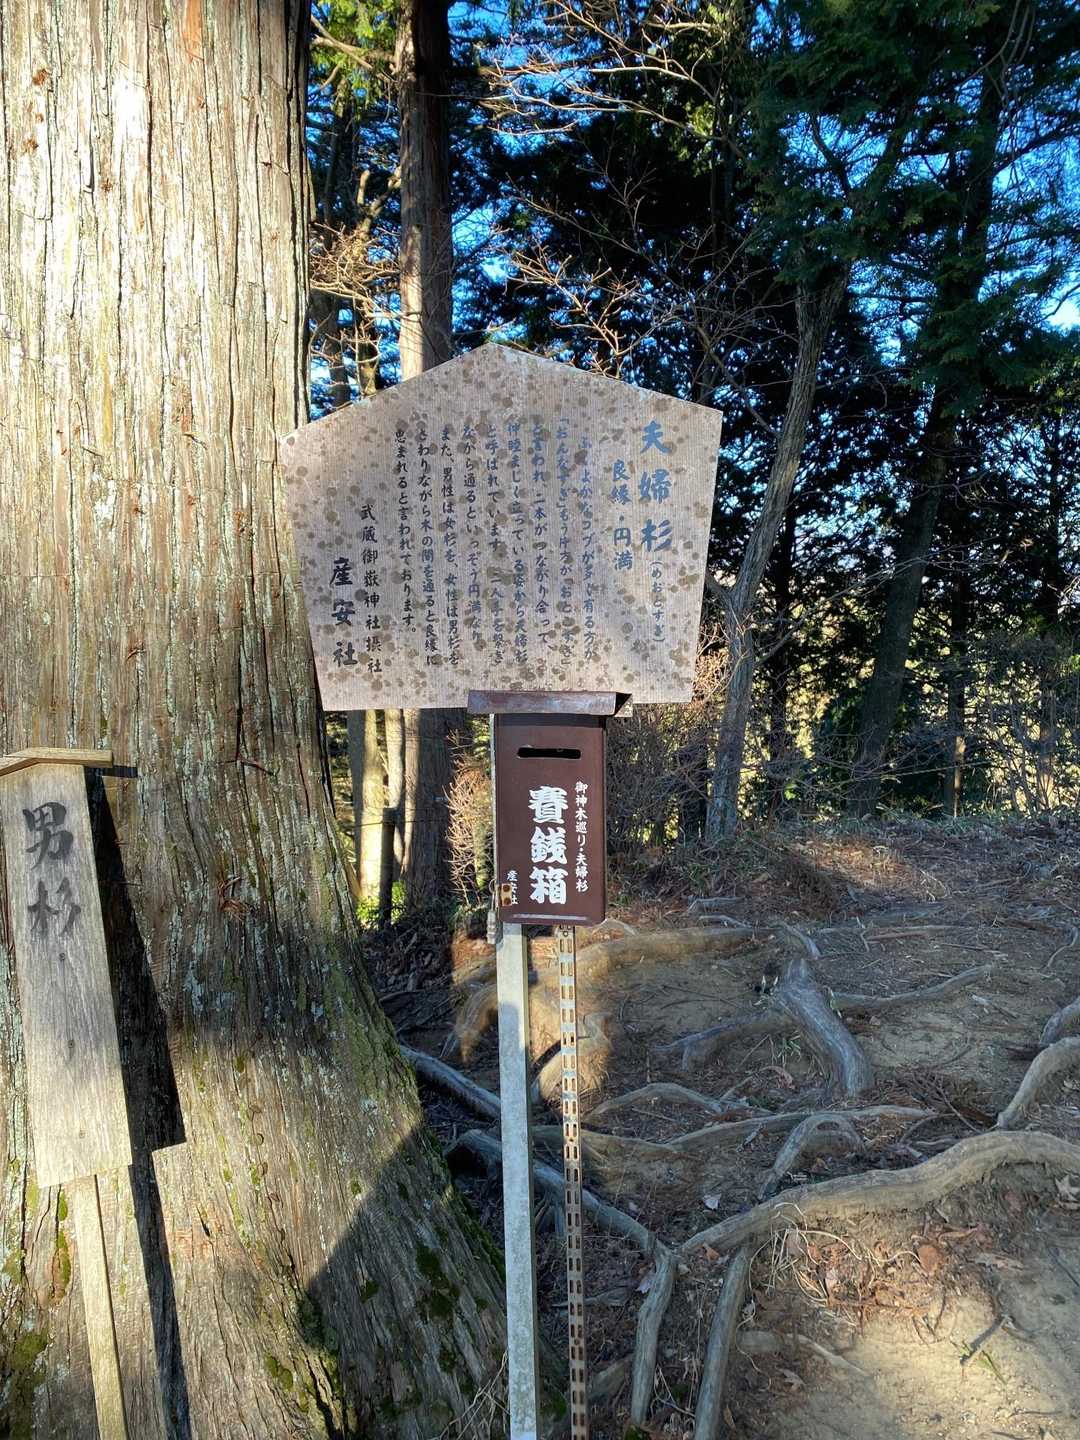 夫婦杉(めおとすぎ)
良縁・円満
ふくよかなコブが多く有る方が
「おんなすぎ」もう片方が「おとこすぎ」
と言われ、二本がつながり合って、
仲睦まじく立っている姿から夫婦杉
と呼ばれています。二人手を繋ぎ
ながら通るといっそう円満になり、
また、男性は女杉を、女性は男杉を
さわりながら木の間を通ると良縁に
恵まれると言われております。
武蔵御嶽神社摂社
産安社
御神木巡り・夫婦杉
賽銭箱
産安社
男杉